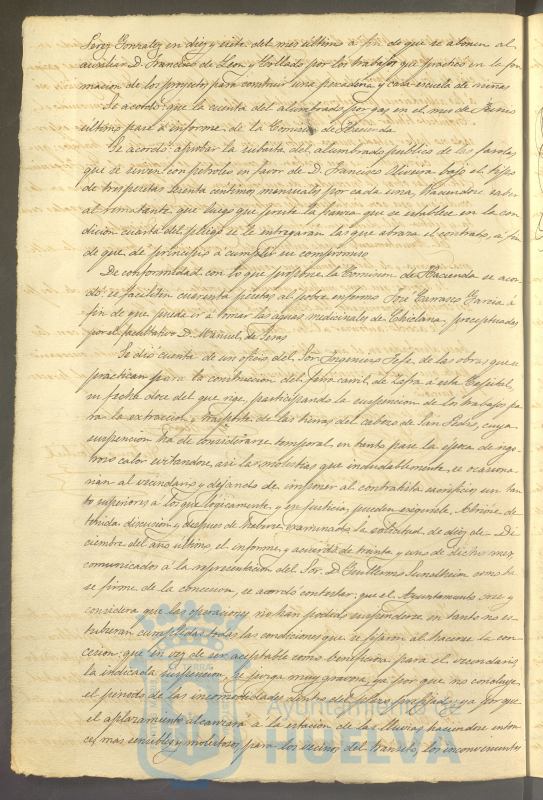 Perez Gonzalez en diez y siete del mes último a fin de que se abonen al
auxiliar D. Francisco de Leon y Collado por los trabajos que practicó en la for
macion de los proyectos para construir una pescaderia y casa-escuela de niñas
Se acordó: que la cuenta del alumbrado por gas en el mes de Junio
último pase a informe de la Comision de Hacienda
Se acordó: aprobar la subasta del alumbrado público de los faroles
que se sirven con petroleo en favor de D. Francisco Rivera bajo el tipo
de tres pesetas sesenta centimos mensuales por cada una, haciendose saber
al rematante que luego que preste la fianza que se establece en la con
dicion cuarta del pliego se le entregaran las que abraza el contrato, a fin
de que de principio a cumplir su compromiso
De conformidad con lo que propone la Comision de Hacienda se acor
dó: se faciliten cuarenta pesetas al pobre enfermo José Carrasco Garcia á
fin de que pueda ir a tomar las aguas medicinales de Chiclana, preceptuadas
por el facultativo D. Manuel de
Se dió cuenta de un oficio del Sor. Ingeniero Jefe de las obras que se
practican para la construccion del ferro carril de Zafra á esta Capital,
su fecha doce del que rige, participando la suspension de los trabajos pa
ra la extraccion y trasporte de las tierras del cabezo de San Pedro, cuya
suspension ha de considerarse temporal en tanto pase la época de rigo
roso calor evitandose asi las molestias que indudablemente se ocasiona
rian al vecindario y dejando de imponer al contratista sacrificios un tan
to superiores a los que lógicamente y en justicia pueden exigirsele. Abriose de
tenida discusion y despues de haberse examinado la solicitud de diez de Di
ciembre del año último, el informe, y acuerdo de treinta y uno de dicho mes
comunicados á la representacion del Sor. D. Guillermo Sundheim como ba
se firme de la concesion, se acordó contestar: que el Ayuntamiento cree y
considera que las operaciones no han podido suspenderse en tanto no es
tubieran cumplidas todas las condiciones que se fijaron al hacerse la con
cesion: que en vez de ser aceptable como beneficiosa para el vecindario
la indicada suspension, se juzga muy gravosa, ya por que no concluye
el periodo de las incomodidades dentro del plazo prefijado, ya por que
el aplazamiento alcanzará a la estacion de las lluvias haciendose enton
ces mas sensibles y molestos para los vecinos del transito, los inconvenientes
TERRA
Ayuntamiento de
HUELVA